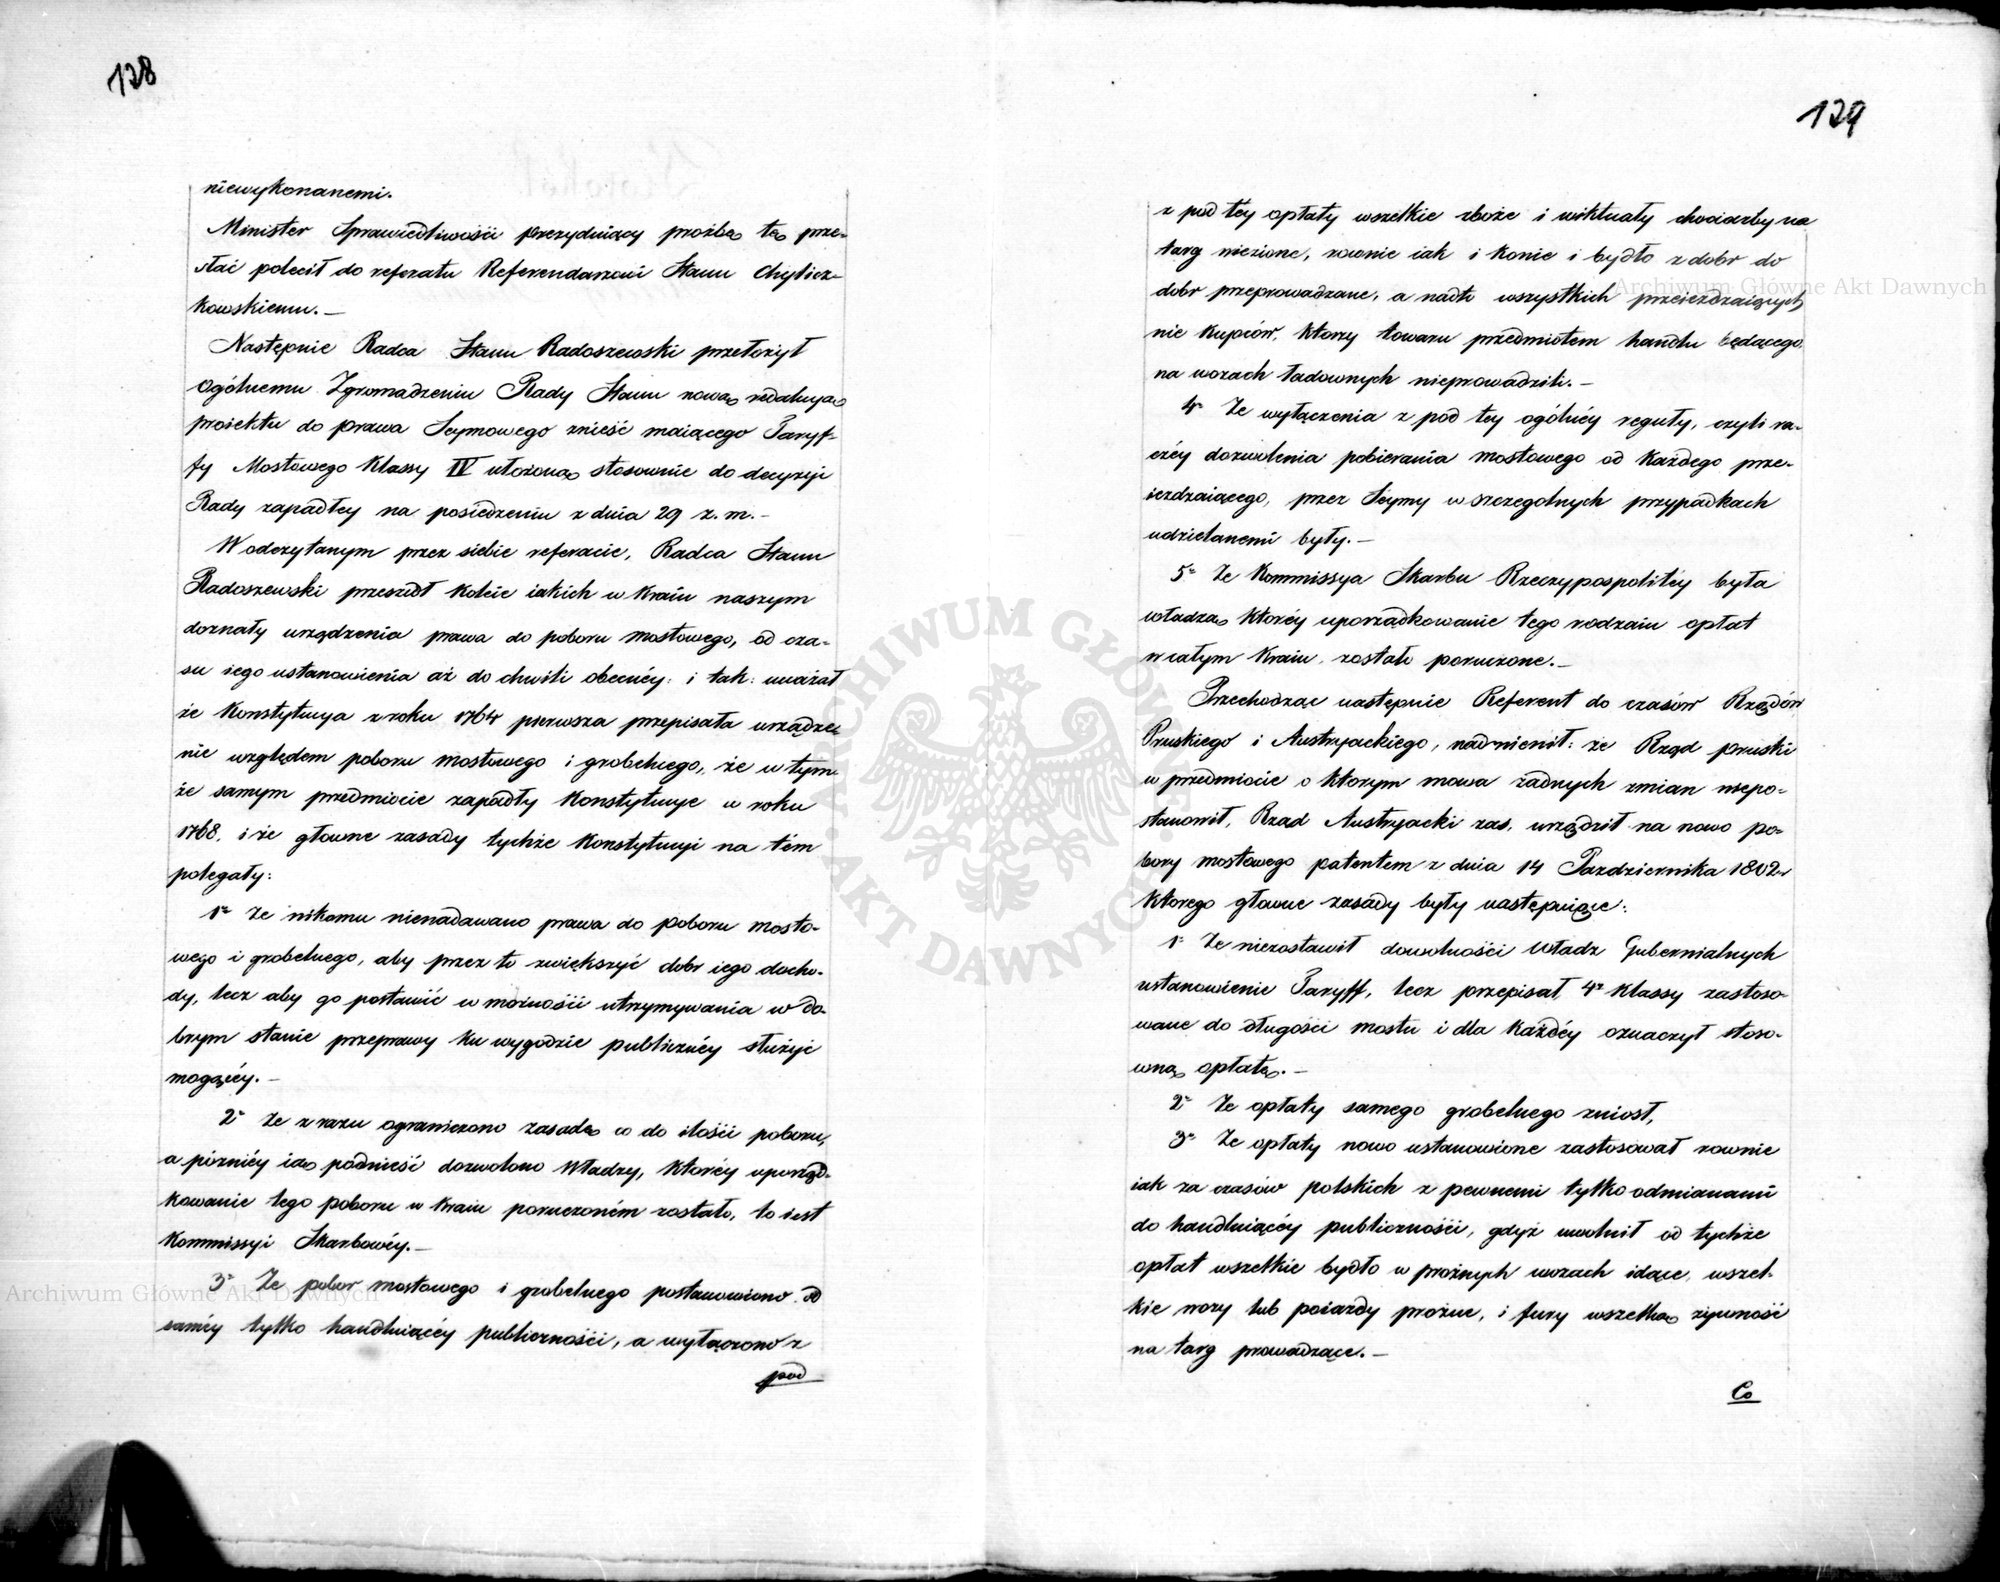 128
niewykonanemi.
Minister Sprawiedliwości prezyduiący prożbę tę prze-
słać polecił do referatu Referendarzowi Stanu Chylicz-
kowskiemu.—
Następnie Radca Stanu Radoszewski przełożył
Ogólnemu Zgromadzeniu Rady Stanu nową redakcyą
proiektu do prawa Seymowego znieść maiącego Taryf-
fy Mostowego Klassy IV ułożoną stosownie do decyzyi
Rady zapadłey na posiedzeniu z dnia 29 z. m.—
W odczytanym przez siebie referacie, Radca Stanu
Radoszewski przeszedł koleie iakich w kraiu naszym
doznały urządzenia prawa do poboru mostowego, od cza-
su iego ustanowienia aż do chwili obecnéy: i tak: uważał
że Konstytucya z roku 1764 pierwsza przepisała urządze-
nie względem poboru mostowego i grobelnego, że w tym-
że samym przedmiocie zapadły Konstytucye w roku
1768, i że głowne zasady tychże Konstytucyi na tém
polegały:
1º Że nikomu nienadawano prawa do poboru mosto-
wego i grobelnego, aby przez to zwiększyć dobr iego docho-
dy, lecz aby go postawić w możności utrzymywania w do-
brym stanie przeprawy ku wygodzie publicznéy służyć
mogącéy.—
2º Że z razu ograniczono zasadę co do ilości poboru,
a późniéy ią podnieść dozwolono Władzy, któréy uporząd-
kowanie tego poboru w kraiu poruczoném zostało, to iest
Kommissyi Skarbowéy.—
3º Że pobor mostowego i grobelnego postanowiono od
saméy tylko handluiącéy publiczności, a wyłączono z
pod
129
z pod téy opłaty wszelkie zboże i wiktuały chociażby na
targ wiezione, rownie iak i konie i bydło z dobr do
dobr przeprowadzane, a nadto wszystkich przeieżdzaiących
nie kupców, którzy towaru przedmiotem handlu będącego,
na wozach ładownych nieprowadzili.—
4º Że wyłączenia z pod téy ogólnéy reguły, czyli ra-
czéy dozwolenia pobierania mostowego od każdego prze-
ieżdzaiącego, przez Seymy w szczegolnych przypadkach
udzielanemi były.—
5º Że Kommissya Skarbu Rzeczypospolitéy była
władzą któréy uporządkowanie tego rodzaiu opłat
w całym kraiu, zostało poruczone.—
Przechodząc następnie Referent do czasów Rządów
Pruskiego i Austryackiego, nadmienił: że Rząd pruski
w przedmiocie o którym mowa żadnych zmian niepo-
stanowił, Rząd Austryacki zas, urządził na nowo po-
bory mostowego patentem z dnia 14 Pazdziernika 1802 r
którego głowne zasady były następuiące:
1º Że niezostawił dowolności Władz Gubernialnych
ustanowienie Taryff, lecz przepisał 4ry klassy zastoso-
wane do długości mostu i dla każdéy oznaczył stoso-
wną opłatę.—
2º Że opłaty samego grobelnego zniosł,
3º Że opłaty nowo ustanowione zastosował rownie
iak za czasów polskich z pewnemi tylko odmianami
do handluiącéy publiczności, gdyż uwolnił od tychże
opłat wszelkie bydło w prożnych wozach idące, wszel-
kie wozy lub poiazdy prożne, i fury wszelką żywność
na targ prowadzące.—
Co